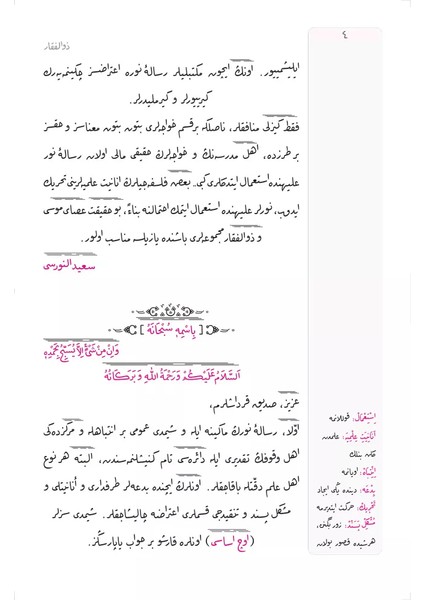 ذوالفقار
٤
ایلیشمییور. اونڭ ایچون مكتبلیلر رسالۀ نوره اعتراضسز چكینمه‌یه‌رك
كیرییورلر و كیرملیدرلر.
فقط كیزلی منافقلر، ناصلكه بر قسم خواجه‌لری بتون بتون معناسز و حقسز
بر طرزده، اهل مدرسه‌نڭ و خواجه‌لرڭ حقیقی مالی اولان رسالۀ نور
علیهنده استعمال ایتدكلری كبی؛ بعضًا فلسفه‌جیلرڭ انانیت علمیه‌لرینی تحریك
ایدوب، نورلر علیهنده استعمال ایتمك احتمالنه بناءً، بو حقیقت عصای موسی
و ذوالفقار مجموعه‌لری باشنده یازیلسه مناسب اولور.
سعید النورسی
[ بِاسْمِهِ سُبْحَانَهُ ]
وَاِنْ مِنْ شَىْءٍ اِلاَّ يُسَبِّحُ بِحَمْدِهِ
اَلسَّلاَمُ عَلَيْكُمْ وَرَحْمَةُ اللّٰهِ وَبَرَكَاتُهُ
عزیز، صدیق قرداشلرم،
اوّلا، رسالۀ نورڭ ماكینه ایله و شیمدی عمومی بر انتباهله و مركزده‌كی
اهل وقوفڭ تقدیری ایله دائره‌سی تام كنیشلنمسندن، البته هر نوع
اهل علم دقتله باقاجقلر. اونلرڭ ایچنده بدعه‌لر طرفداری و انانیتلی و
مشكل‌پسند و تنقیدجی قسملری اعتراضه چالیشاجقلر. شیمدی سزلر
(اوچ اساسی) اونلره قارشو بر جواب یاپارسڭز.
اِسْتِعْمَالْ: قوللانمه
اَنَانِيَتِ عِلْمِيَه: علمدن
كلن بنلك
اِنْتِبَاهْ: اویانمه
بِدْعَه: دینده یڭی ایجاد
تَحْرِيكْ: حركت ایتدیرمه
مُشْكِلْ‌پَسَنْدْ: زور بگنن،
هرشیده قصور بولان